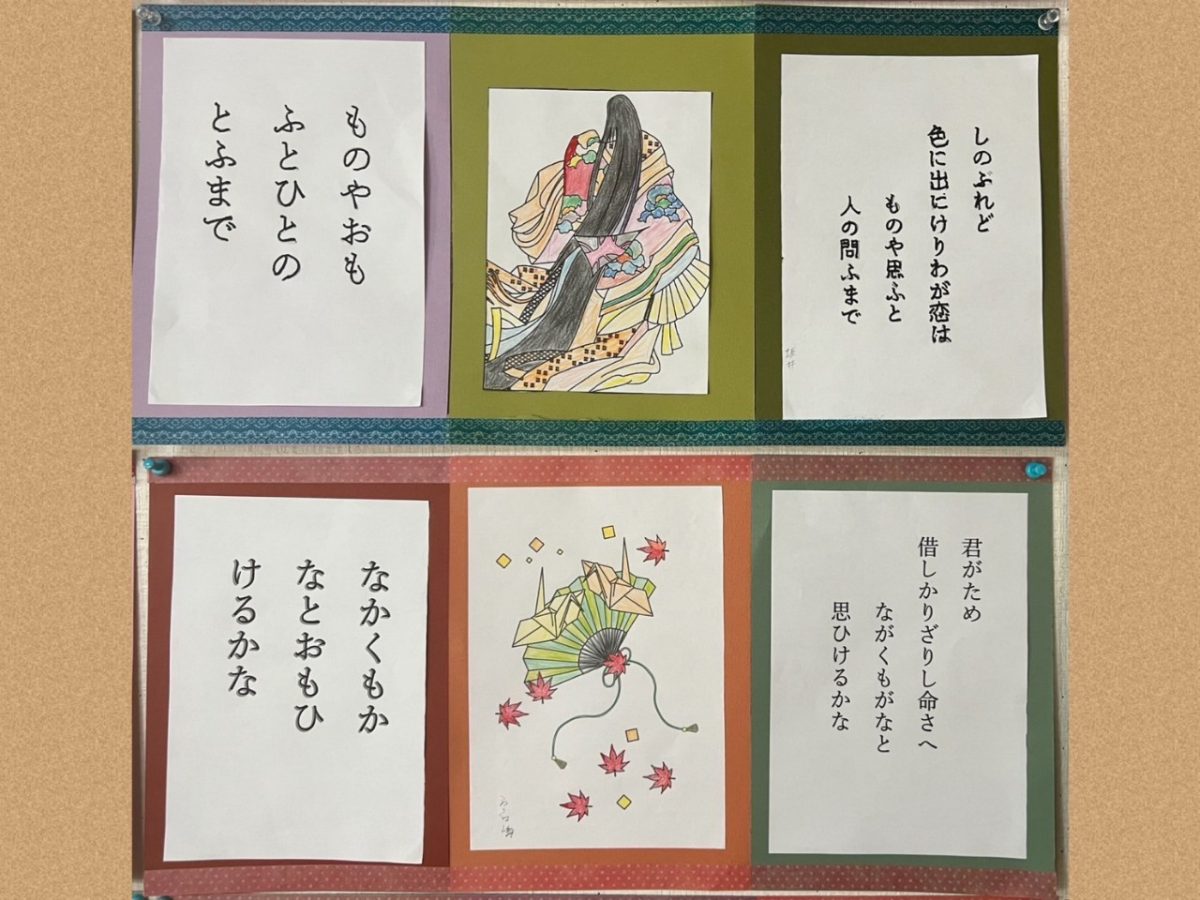 しのぶれど
色に出にけりわが恋は
ものや思ふと
人の問ふまで
ものやおも
ふとひとの
とふまで
君がため
借しかりざりし命さへ
ながくもがなと
思ひけるかな
なかくもか
なとおもひ
けるかな